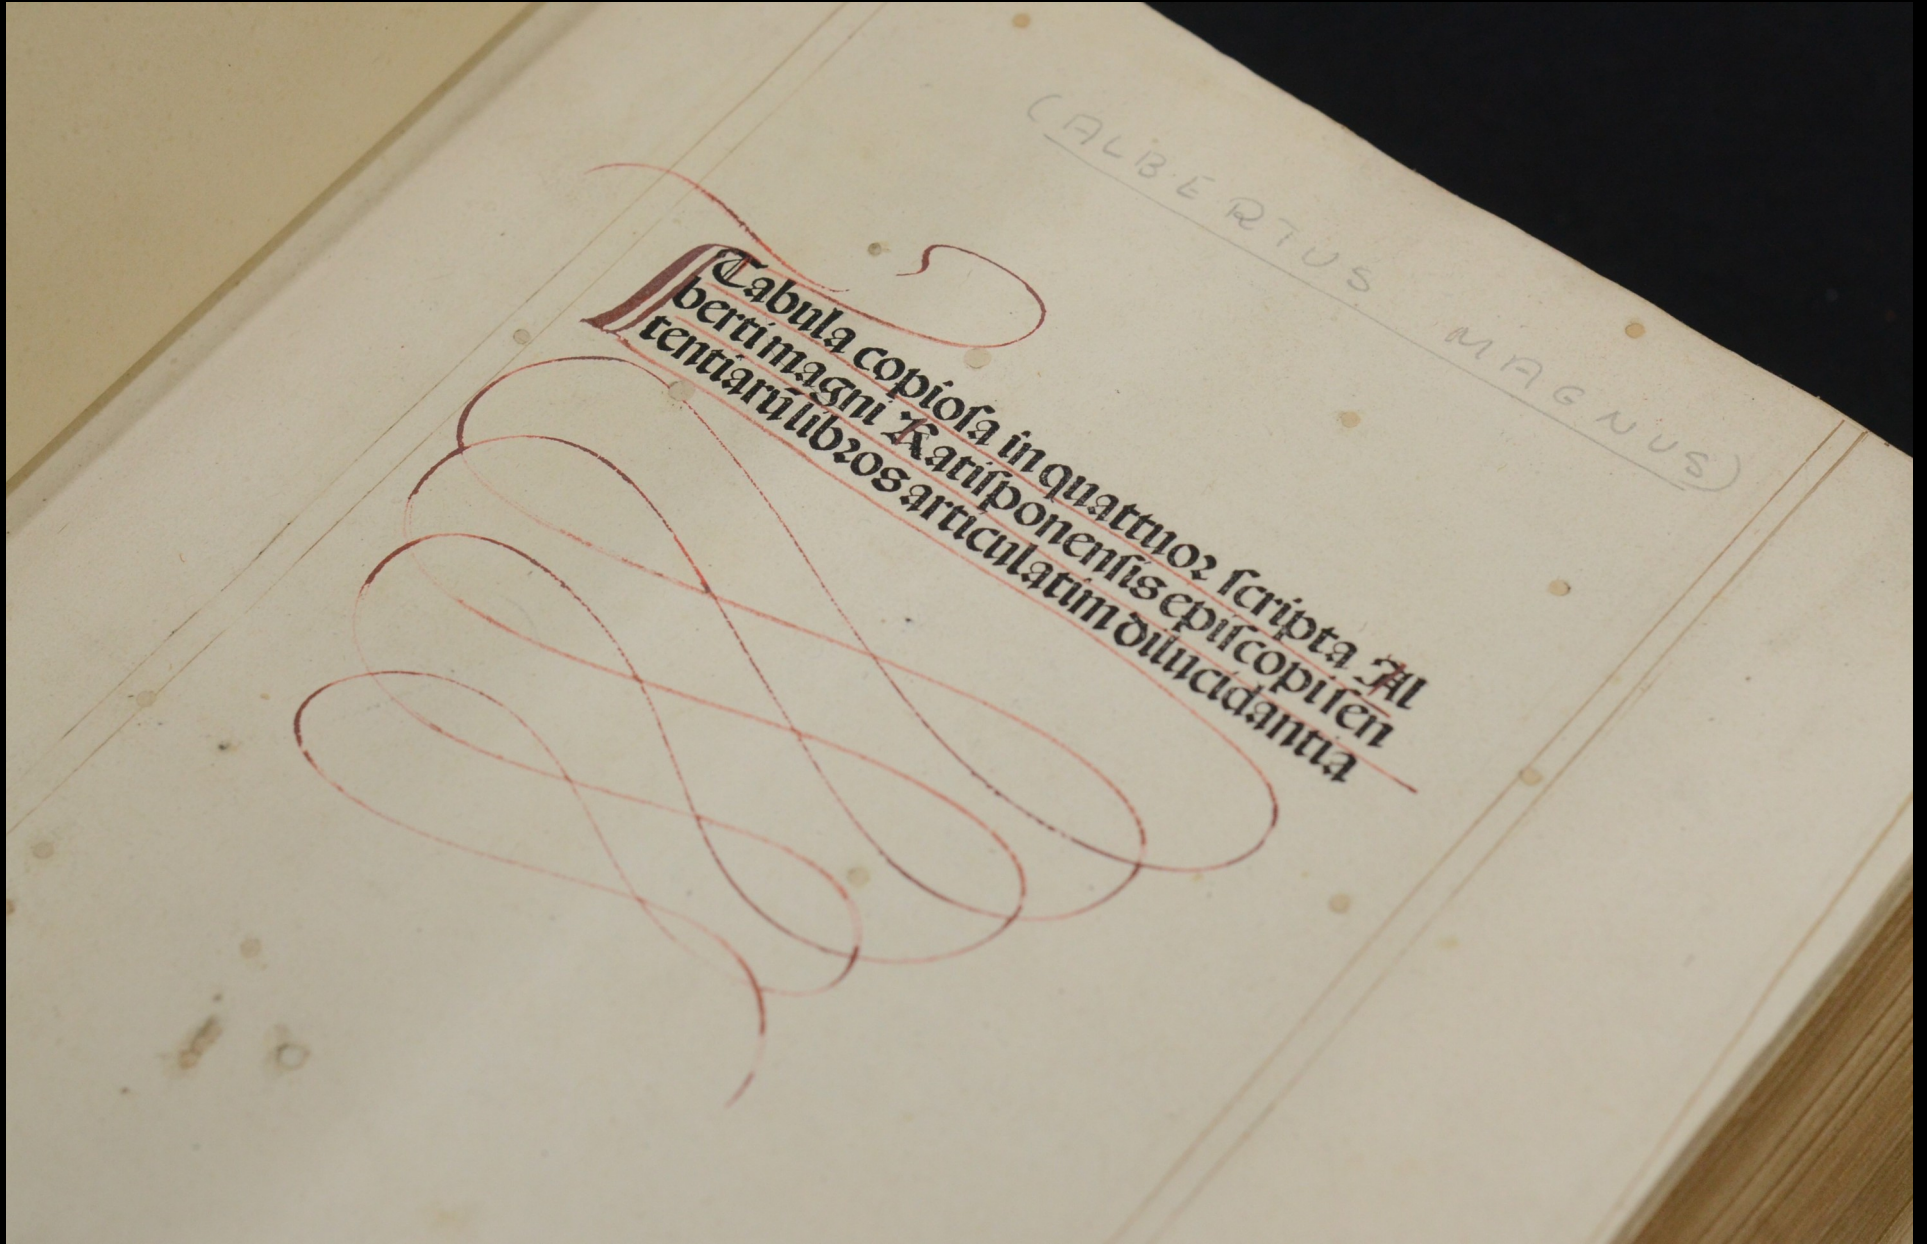 (ALBERTUS MAGNUS)
Tabula copioſa in quattuoꝛ ſcripta Al
berti magni Ratiſponenſis epiſcopi ſen
tentiarū libꝛos articulatim dilucidantia